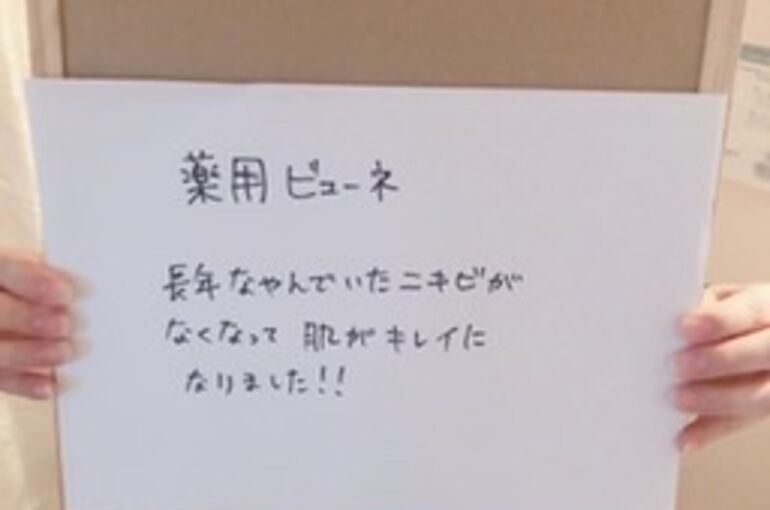 薬用ビューネ
長年なやんでいたニキビが
なくなって 肌がキレイに
なりました!!